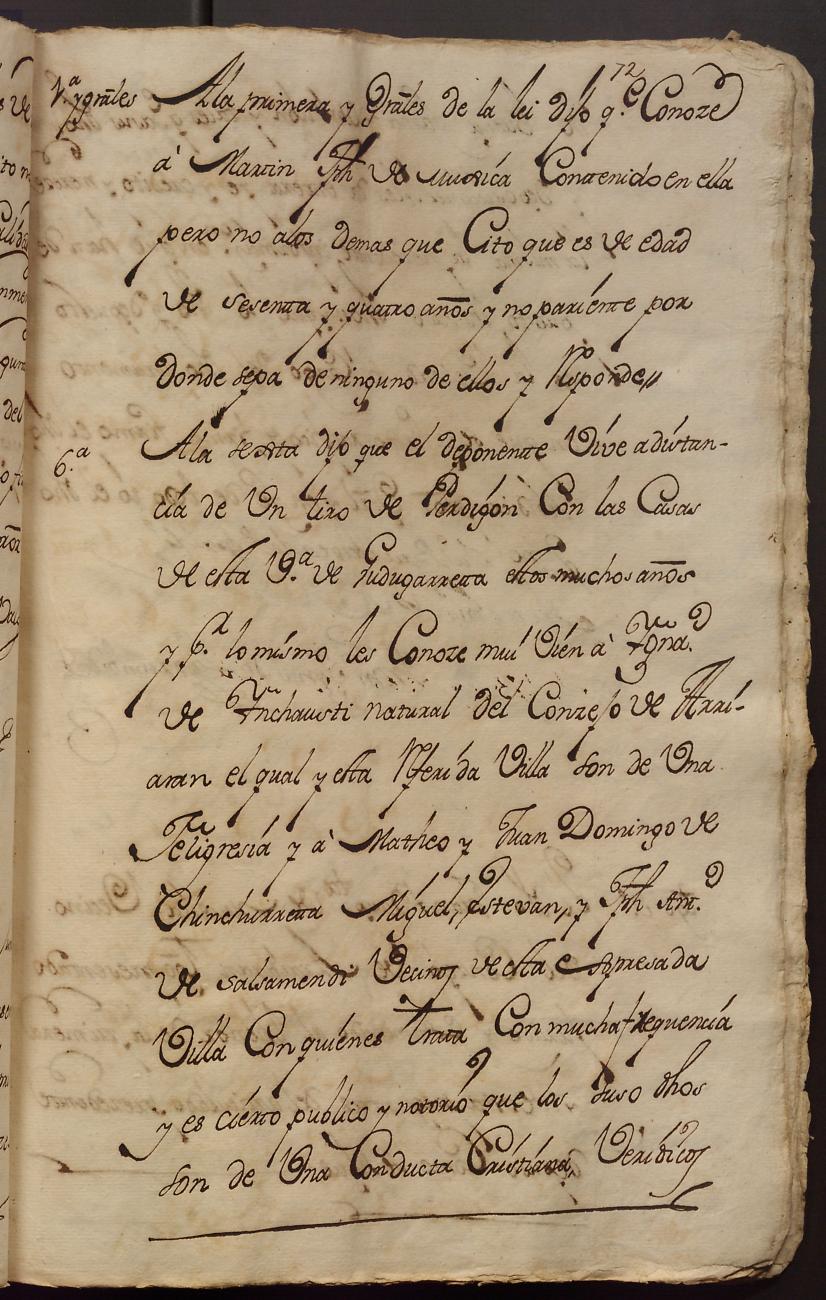 72
1.ª y grāles Ala primera y Grāles de la lei dijo q.e Conoze
à Martin Jph de Muxica Contenido en ella
pero no alos Demas que Cito que es de edad
de sesenta y quatro años y no pariente por
donde sepa de ninguno de ellos y Rsponde//
6.ª Ala sexta dijo que el deponente Vive a distan-
cia de Un tiro de Perdigon Con las Casas
de esta V.ª de Gudugarreta estos muchos años
y p.r lo mismo les Conoze mui Vien à Ygna.º
de Ynchausti natural del Conzejo de Arri-
aran el qual y esta Rferida Villa son de Una
Feligresia y à Matheo y Juan Domingo de
Chinchurreta Miguel, Estevan, y Jph Ant.º
de Salsamendi Vecinos de esta expresada
Villa Con quienes trata Con mucha frequencia
y es cierto publico y notorio que los suso dhos
son de Una Conducta Cristiana, Veridicos